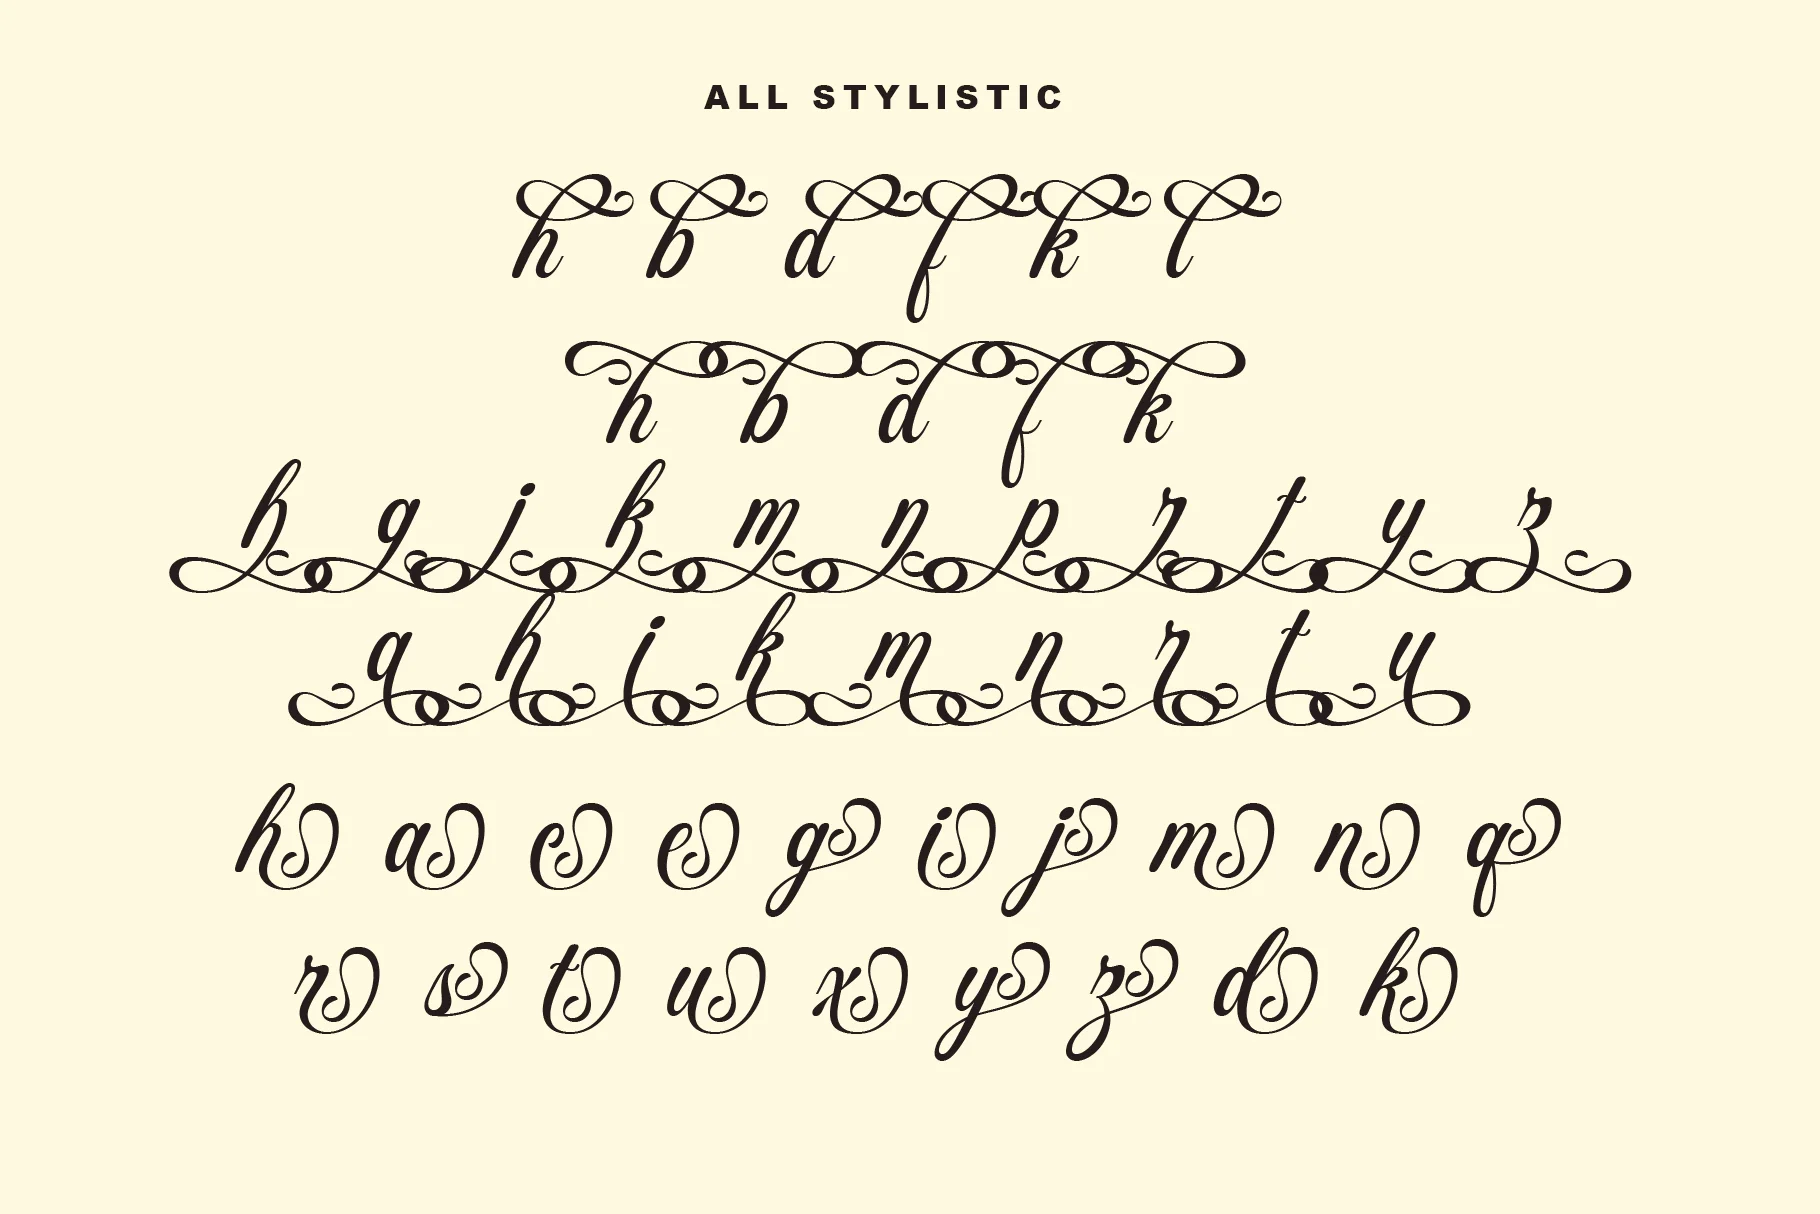 ALL STYLISTIC
h b d f k l
h b d f k
h g j k m n p r t y z
a h i k m n r t u
h a c e g i j m n q
r s t u x y z d k